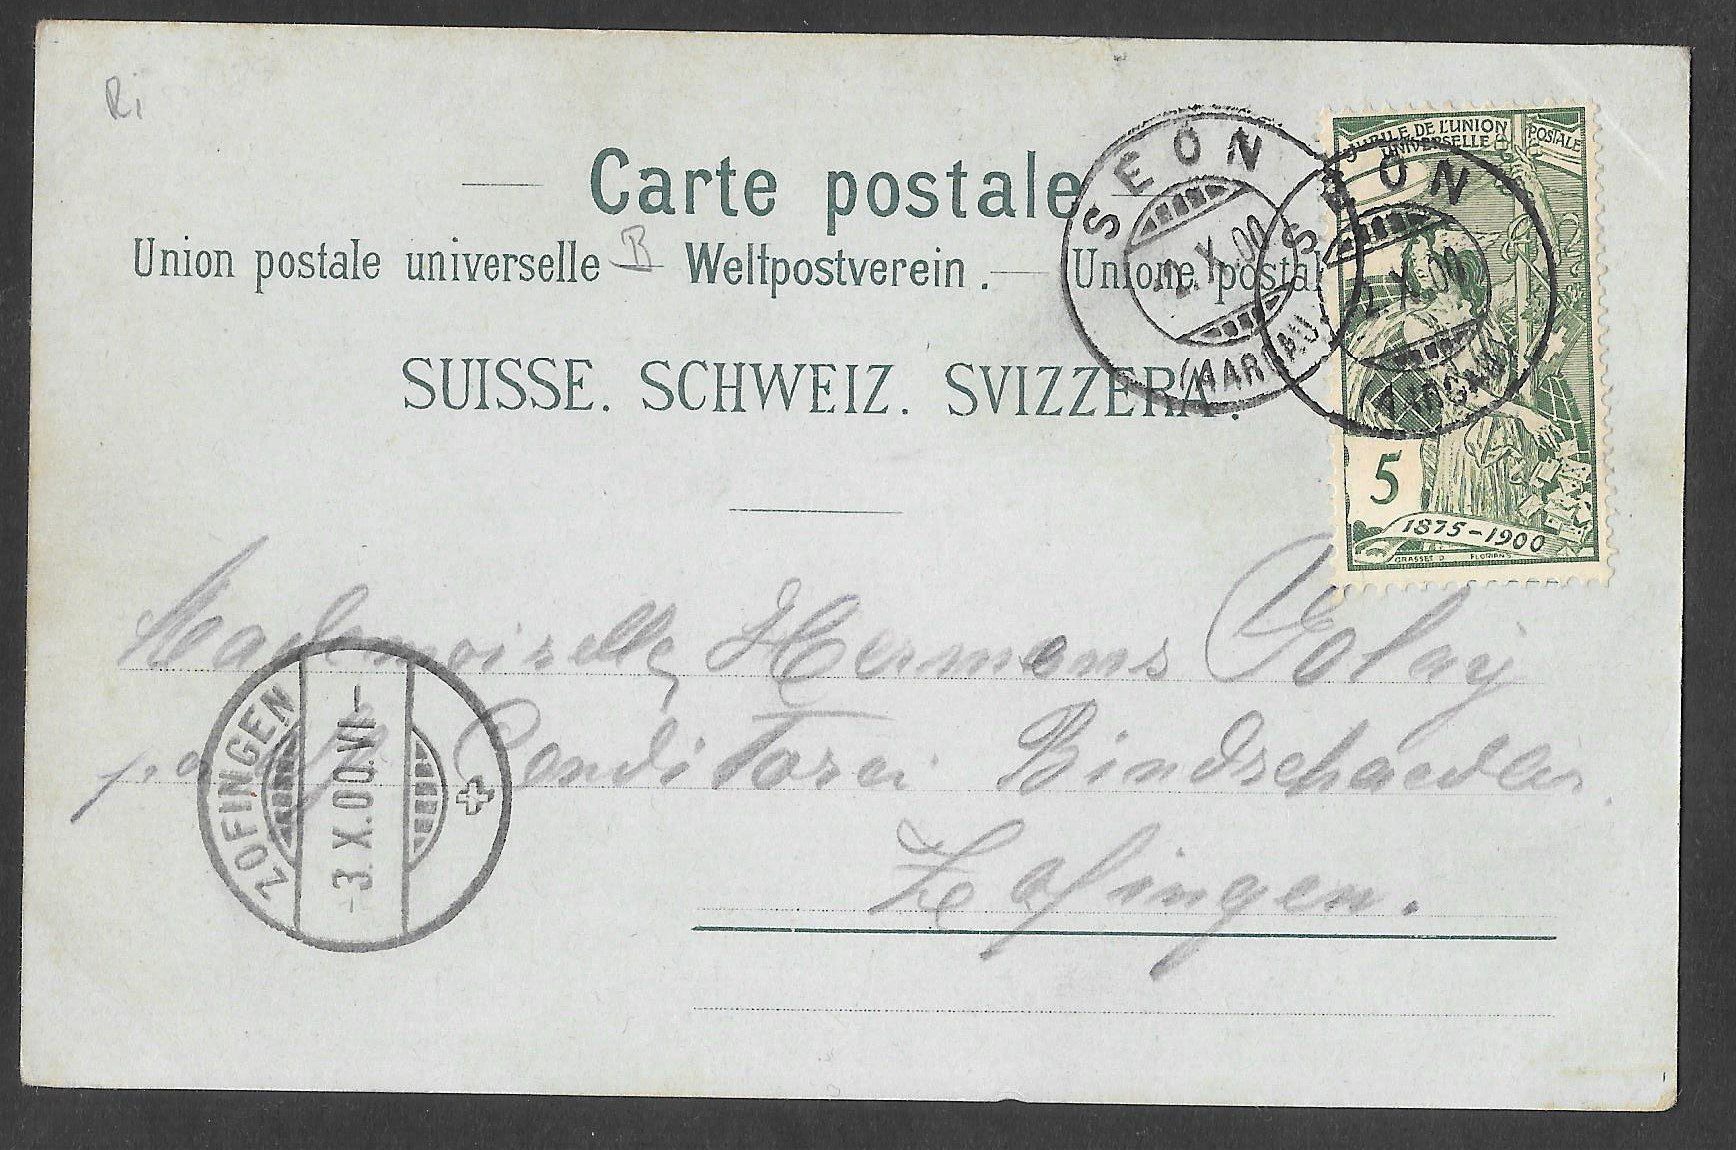 Ri
JUBILÉ DE L'UNION
UNIVERSELLE
POSTALE
Carte postale
Union postale universelle B Weltpostverein. Unione postal
SUISSE. SCHWEIZ. SVIZZERA.
SEON
2.X.00
(AARGAU)
SEON
2.X.00
(AARGAU)
5
1875-1900
GRASSET D FLORIAN S
Mademoiselle Hermens Golay
Conditorei Bindschaedler
Zofingen.
ZOFINGEN
-3.X.00.VI-